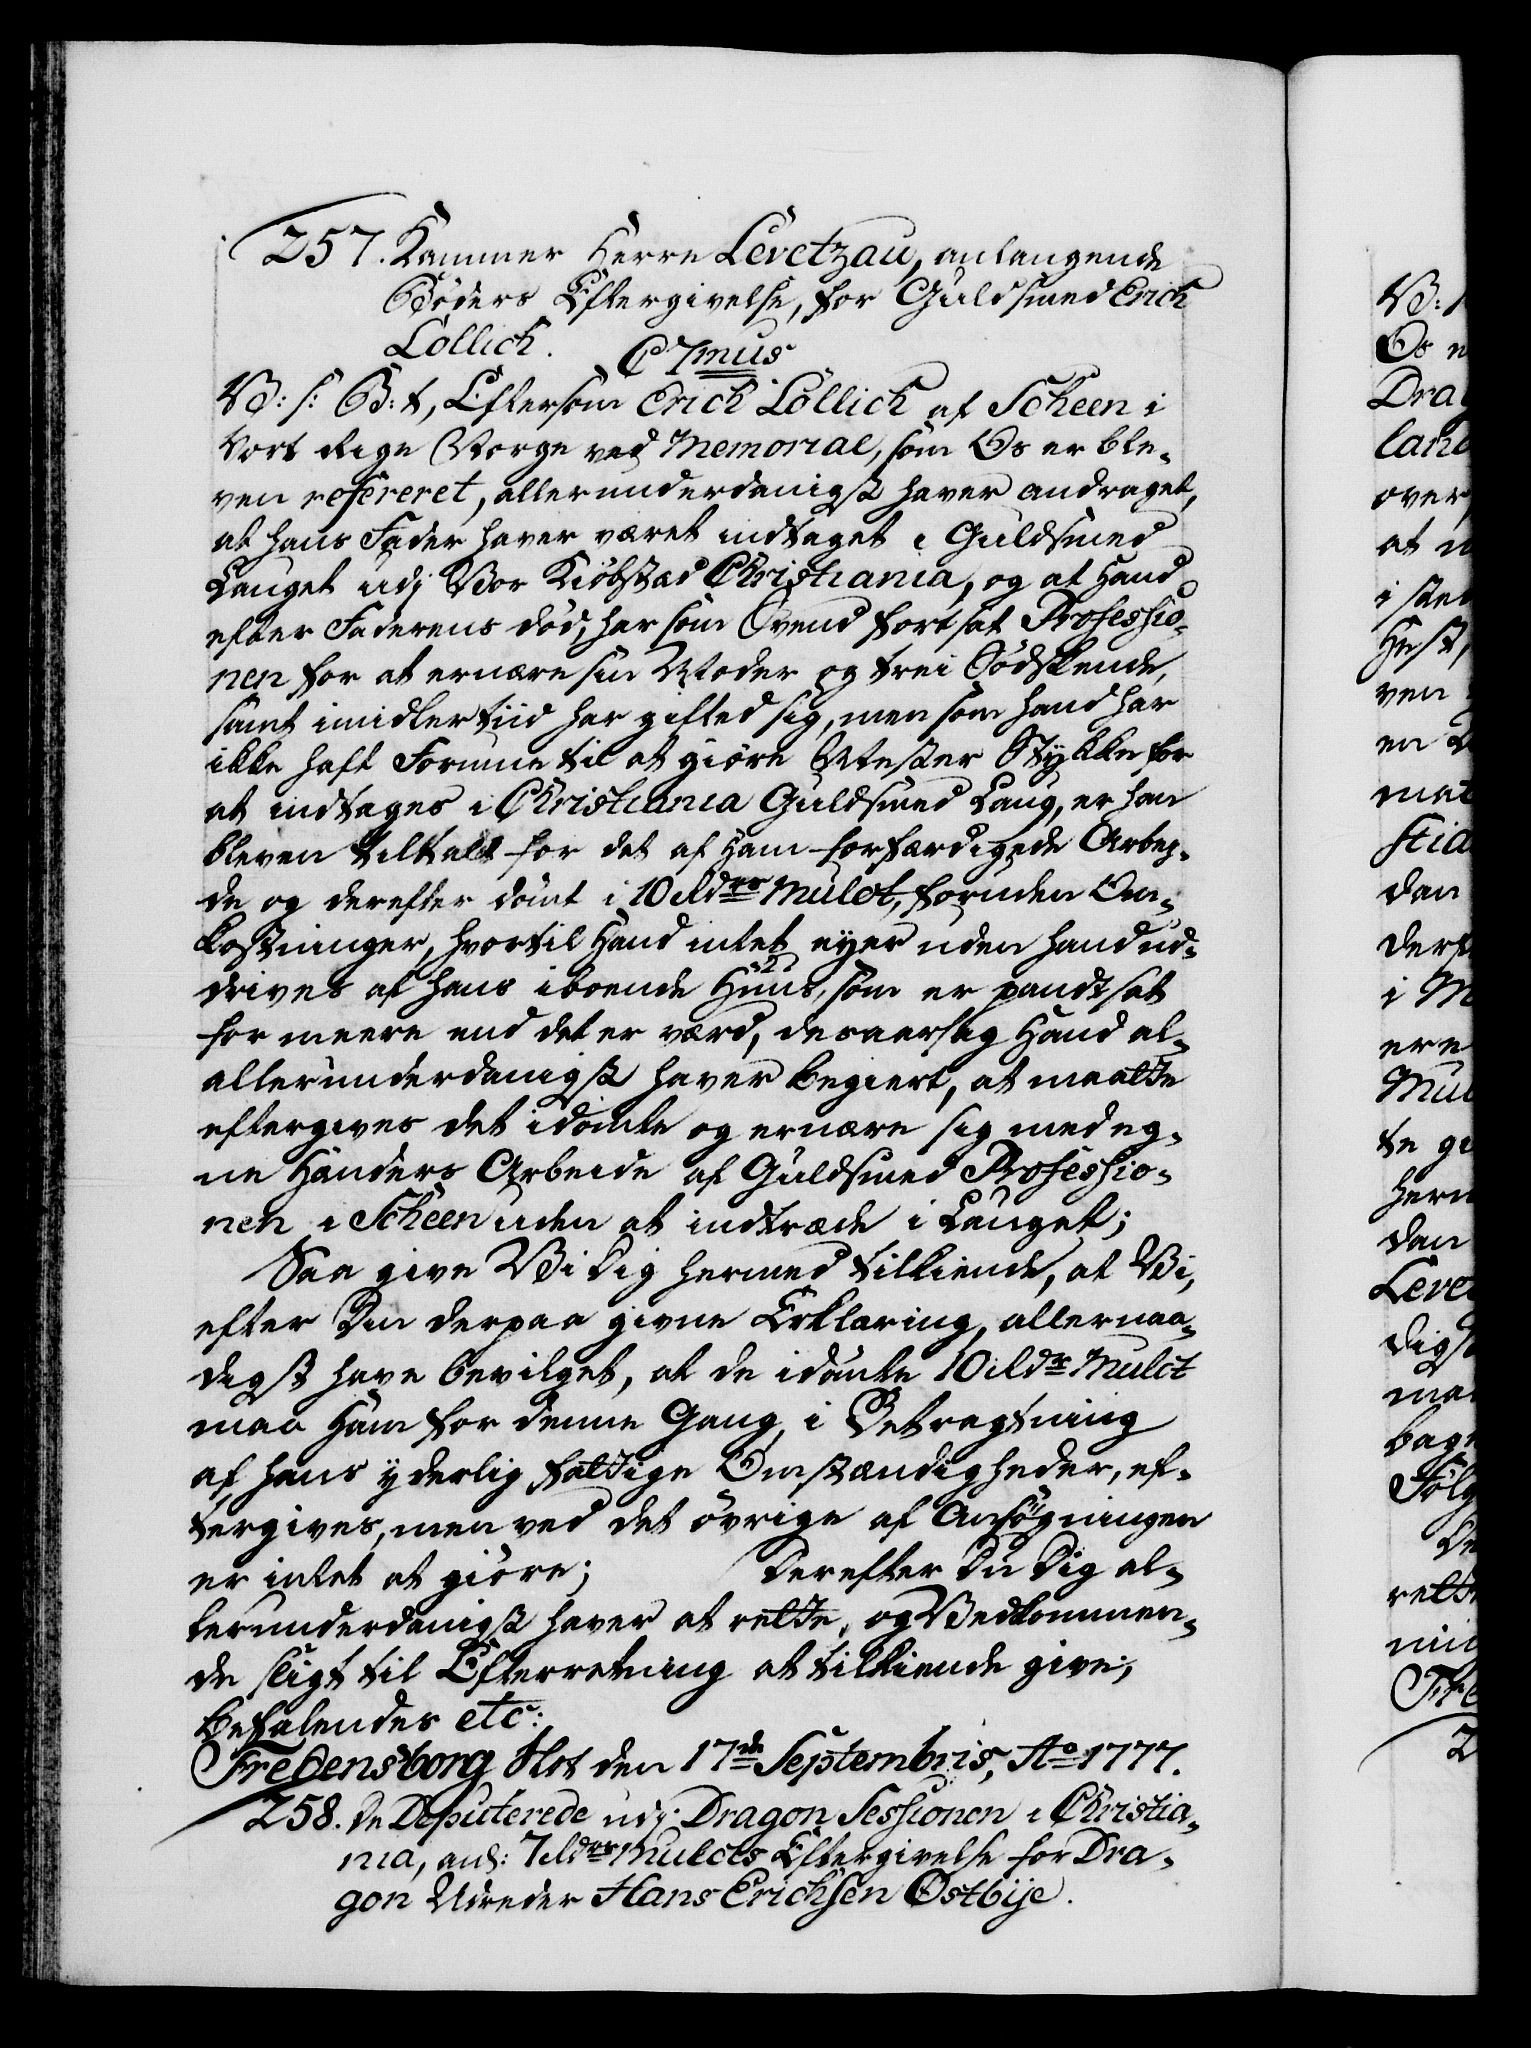 257. Kammer Herre Levetzau, anlangende
Bøders Eftergivelse, for Guldsmed Erich
Löllich. C 7mus
V: s: G: t, Eftersom Erich Löllich af Scheen i
Vort Rige Norge ved Memorial, som Os er ble-
ven refereret, allerunderdanigst haver andraget,
at hans Fader haver været indtaget i Guldsmed
Lauget udj Vor Kiøbstæd Christiania, og at Hand
efter Faderens død, har som Svend fortsat Professio-
nen for at ernære sin Moder og trei Sødskende,
samt imidlertiid har gifted sig, men som hand har
ikke haft Formue til at giøre Mester Stykke for
at indtages i Christiania Guldsmed Laug, er han
bleven tiltalt for det af ham forfærdigede Arbey-
de og derefter dømt i 10 Rdrs Mulct, foruden Om-
kostninger, hvortil Hand intet eyer uden hand ud-
drives af hans iboende Huus, som er pandtsat
for meere end det er værd, desaarsag Hand al-
allerunderdanigst haver begiert, at maatte
eftergives det idømte og ernære sig med eg-
ne Hænders Arbeide af Guldsmed Professio-
nen i Scheen uden at indtræde i Lauget;
Saa give Vi Dig hermed tilkiende, at Vi,
efter Din derpaa givne Erklæring, allernaa-
digst have bevilget, at de idømte 10 Rdr Mulct
maa Ham for denne Gang, i Betragtning
af hans yderlig fattige Omstændigheder, ef-
tergives, men ved det øvrige af Ansøgningen
er intet at giøre; Derefter Du Dig al-
lerunderdanigst haver at rette, og Vedkommen-
de sligt til Efterretning at tilkiende give;
Befalendes etc:
Fredensborg Slot den 17de Septembris, Ao 1777.
258. De Deputerede udj Dragon Sessionen i Christia-
nia, anl: 7 Rdrs Mulcts Eftergivelse for Dra-
gon Udreder Hans Erichsen Østbije.